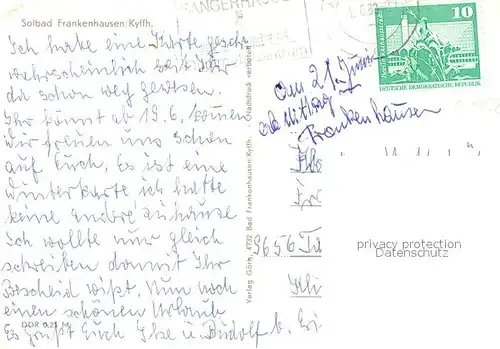 Solbad Frankenhausen/Kyffh.
SANGERHAUSEN
10
DEUTSCHE DEMOKRATISCHE REPUBLIK
Ich habe eine Karte gesch.
wahrscheinlich seit Ihr
da schon weg gewesen.
Ihr könnt ab 13.6. kommen
Wir freuen uns schon
auf Euch. Es ist eine
Winterkarte ich hatte
keine andre zuhause
Ich wollte nur gleich
schreiben damit Ihr
Bescheid wißt. Nun noch
einen schönen Urlaub
Es grüßt Euch Ilse u. Rudolf b.
DDR 0,25 M
Verlag Görk, 4732 Bad Frankenhausen/Kyffh. - (Nachdruck verboten)
am 21. Juni
ab Mittag
Frankenhausen
3656
privacy protection
Datenschutz